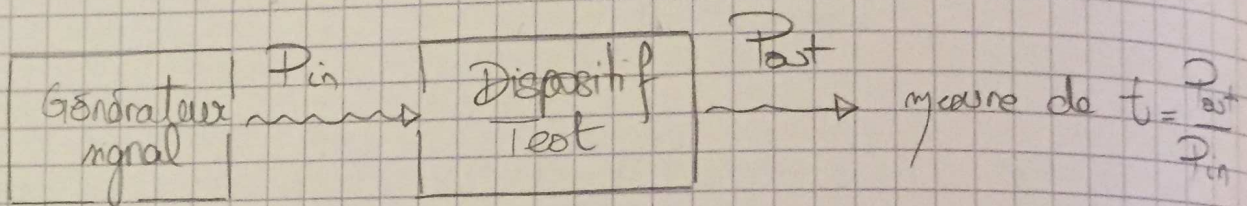 Générateur
signal
Pin
Dispositif
Test
Pout
mesure de t = Pout / Pin